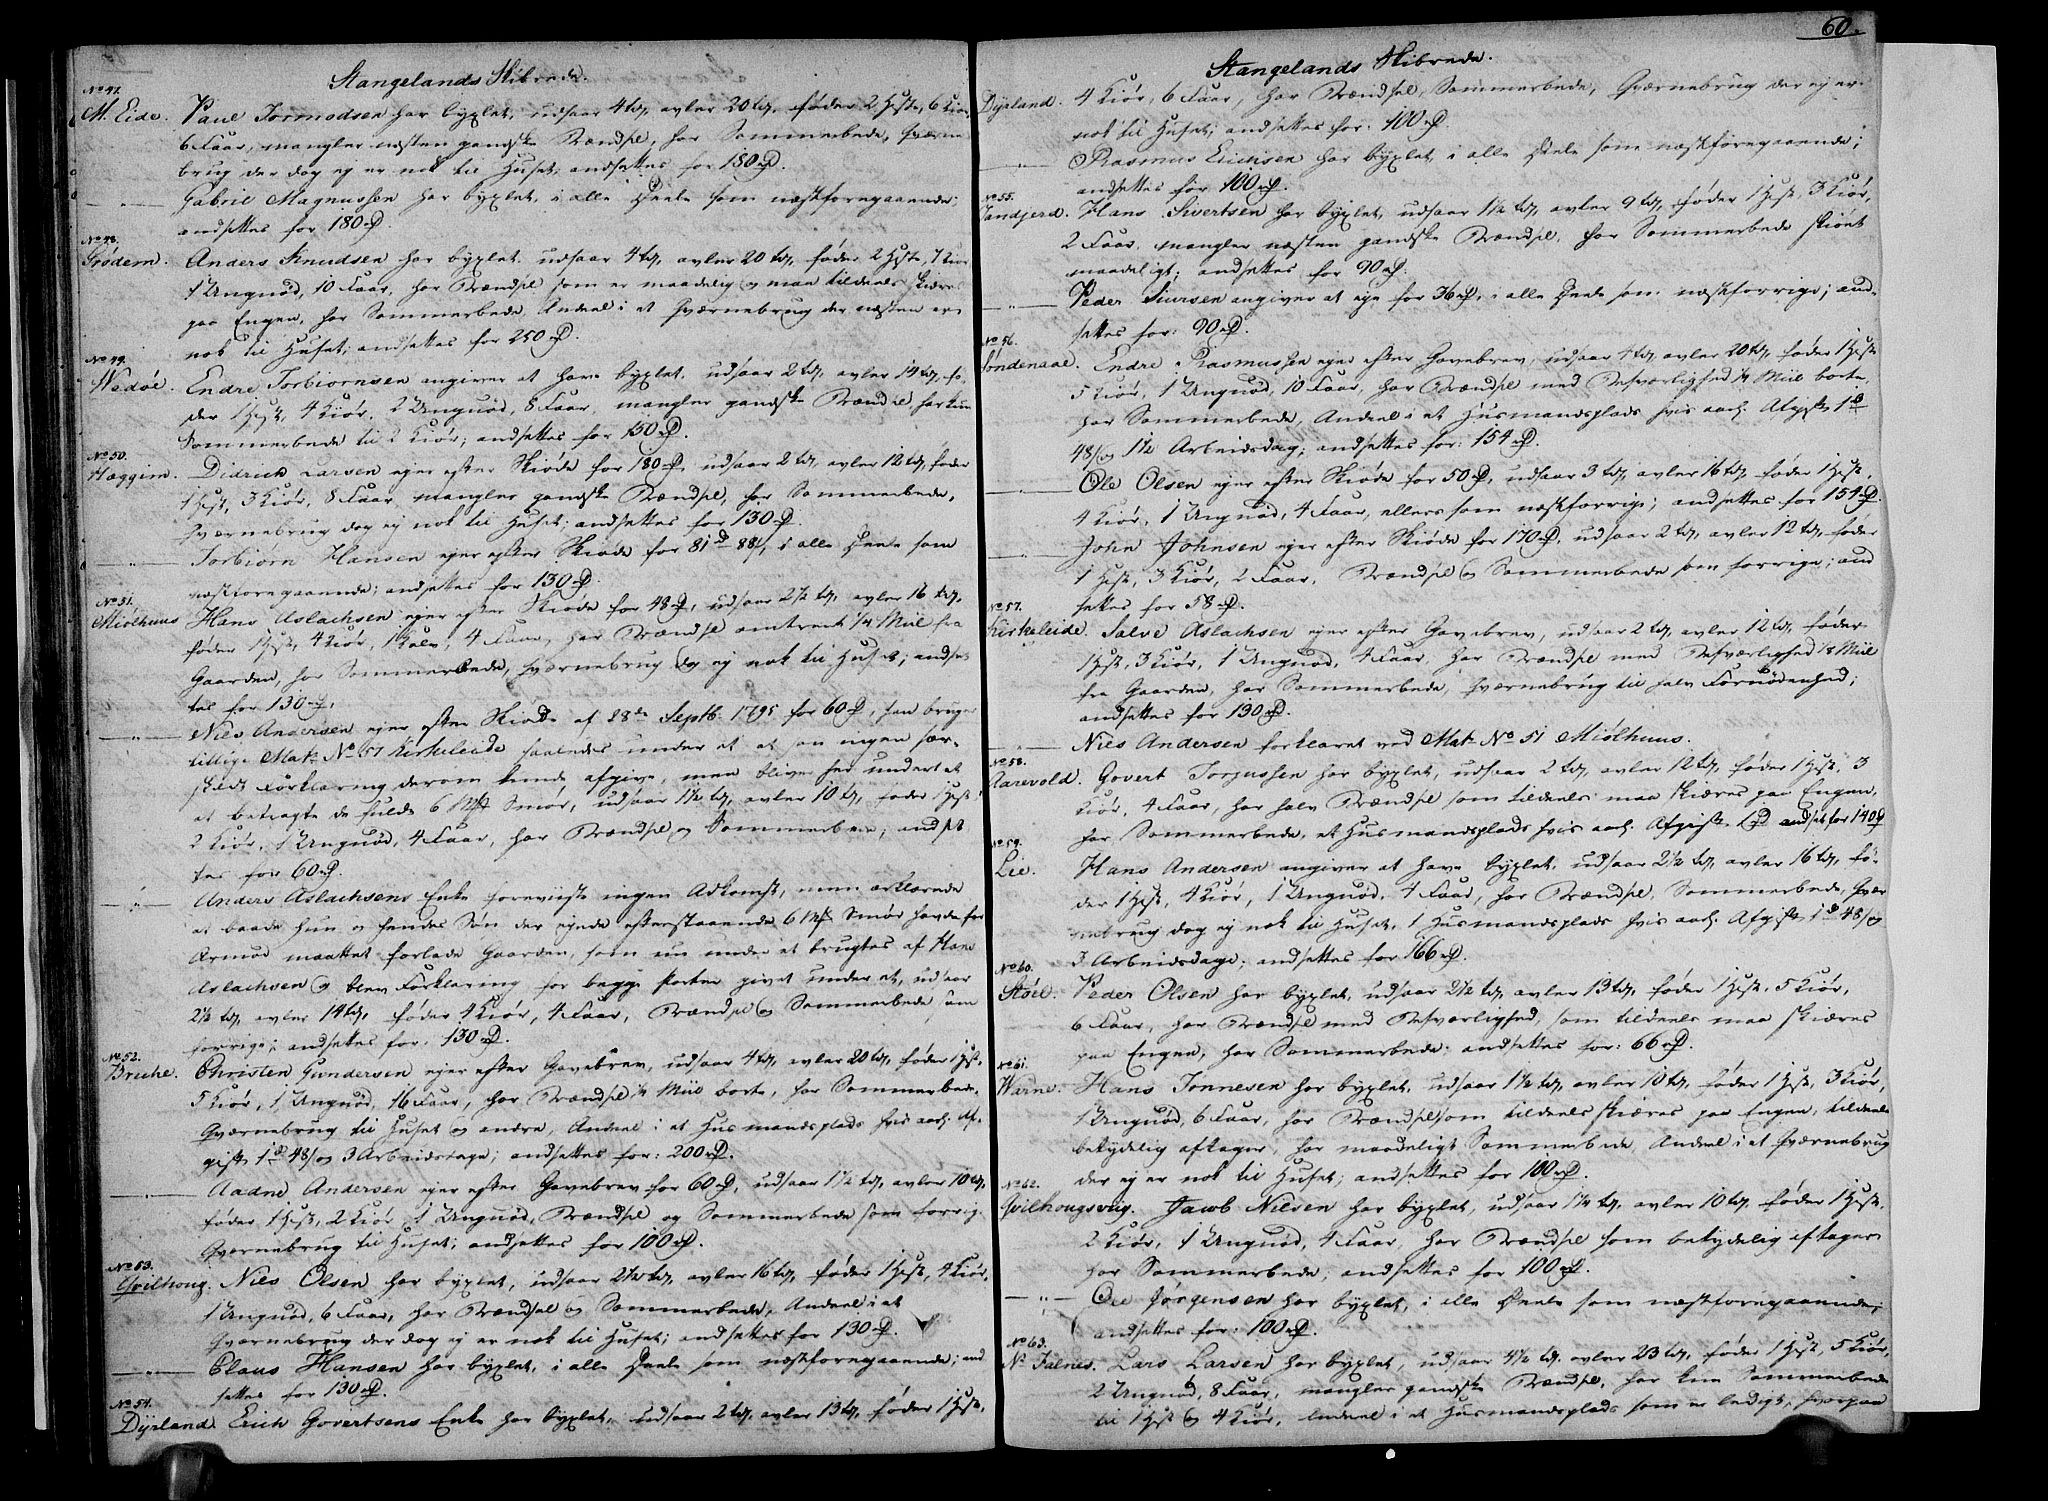 Stangelands Skibrede.
No 47.
M. Eide. Paul Tormodsen har byxlet, udsaar 4 td, avler 20 td, føder 2 Hste, 6 Kiør,
6 Faar, mangler næsten gandske Brændsel, har Sommerbede, Qværne-
brug der dog ej er nok til Huset; andsettes for 180 rD.
Gabriel Magnussen har byxlet, i alle Deele som næstforegaaende;
andsettes for 180 rD.
No 48.
Grødem. Anders Knudsen har byxlet, udsaar 4 td, avler 20 td, føder 2 Hste, 7 Kiør
1 Ungnød, 10 Faar, har Brændsel som er maadelig og maa tildeels skiæres
paa Engen, har Sommerbede, Andeel i et Qværnebrug der næsten er
nok til Huset; andsettes for 250 rD.
No 49.
Wedøe. Endre Torbiørnsen angiver at have byxlet, udsaar 2 td, avler 14 td, fø-
der 1 Hest, 4 Kiør, 2 Ungnød, 8 Faar, mangler gandske Brændsel har kun
Sommerbede til 2 Kiør; andsettes for 150 rD.
No 50.
Hæggim. Didrich Larsen ejer efter Skiøde for 180 rD, udsaar 2 td, avler 12 td, føder
1 Hest, 3 Kiør, 8 Faar, mangler gandske Brændsel, har Sommerbede,
Qværnebrug dog ej nok til Huset; andsettes for 130 rD.
Torbiørn Hansen ejer efter Skiøde for 81 rD 88 s, i alle Deele som
næstforegaaende; andsettes for 130 rD.
No 51.
Miølhuus Hans Aslachsen ejer efter Skiøde for 48 rD, udsaar 2½ td, avler 16 td,
føder 1 Hest, 4 Kiør, 1 Kalv, 4 Faar, har Brændsel omtrent ¼ Miil fra
Gaarden, har Sommerbede, Qværnebrug dog ej nok til Huset; andset-
tes for 130 rD.
Niels Andersen ejer efter Skiøde af 28de Septb. 1795 for 60 rD, han bruger
tillige Mat. No 57 Kirkeleide saaledes under et at han ingen sær-
skildt Forklaring derom kunde afgive, men bliver her under et
at betragte de fulde 6 Smør, udsaar 1½ td, avler 10 td, føder 1 Hest,
2 Kiør, 1 Ungnød, 4 Faar, har Brændsel og Sommerbede; andset-
tes for 60 rD.
Anders Aslachsens Enke foreviiste ingen Adkomst, men erklærede
at baade hun og hendes Søn der ejede efterstaaende 6 Smør havde for
Armod maattet forlade Gaarden, som nu under et bruges af Hans
Aslachsen og blev Forklaring for begge Parter givet under et, udsaar
2½ td, avler 14 td, føder 4 Kiør, 4 Faar, Brændsel og Sommerbede som
forrige; andsettes for: 130 rD.
No 52.
Bruhe. Christen Gundersen ejer efter Gavebrev, udsaar 4 td, avler 20 td, føder 1 Hest,
5 Kiør, 1 Ungnød, 16 Faar, har Brændsel ¼ Miil borte, har Sommerbede,
Qværnebrug til Huset og andre, Andeel i et Husmandsplads hvis aarl. Af-
gift 1 rD 48 s og 3 Arbeidsdage; andsettes for: 200 rD.
Aadne Andersen ejer efter Gavebrev for 60 rD, udsaar 1½ td, avler 10 td,
føder 1 Hest, 2 Kiør, 1 Ungnød, Brændsel og Sommerbede som forrig.
Qværnebrug til Huset; andsettes for 100 rD.
No 53.
Qvilhoug. Niels Olsen har byxlet, udsaar 2½ td, avler 16 td, føder 1 Hest, 4 Kiør,
1 Ungnød, 6 Faar, har Brændsel og Sommerbede, Andeel i et
Qværnebrug der dog ej er nok til Huset; andsettes for 130 rD.
Claus Hansen har byxlet, i alle Deele som næstforegaaende; and-
settes for 130 rD.
No 54.
Dÿrland. Erich Govertsens Enke har byxlet, udsaar 2 td, avler 13 td, føder 1 Hest,
60.
Stangelands Skibrede.
Dÿrland. 4 Kiør, 6 Faar, har Brændsel, Sommerbede, Qværnebrug der ej er
nok til Huset; andsettes for: 100 rD.
Rasmus Erichsen har byxlet i alle Deele som næstforegaaende;
andsettes for 100 rD.
No 55.
Sandjerd. Hans Sivertsen har byxlet, udsaar 1½ td, avler 9 td, føder 1 Hest, 3 Kiør,
2 Faar, mangler næsten gandske Brændsel, har Sommerbede skiønt
maadeligt; andsettes for 90 rD.
Peder Siursen angiver at eje for 36 rD, i alle Deele som næstforrige; and-
settes for: 90 rD.
No 56.
Søndenaae. Endre Rasmussen ejer efter Gavebrev, udsaar 4 td, avler 20 td, føder 1 Hest
5 Kiør, 1 Ungnød, 10 Faar, har Brændsel med Besværlighed ¼ Miil borte,
har Sommerbede, Andeel i et Husmandsplads hvis aarl. Afgift 1 rD
48 s og 1½ Arbeidsdag; andsettes for: 154 rD.
Ole Olsen ejer efter Skiøde for 50 rD, udsaar 3 td, avler 16 td, føder 1 Hest,
4 Kiør, 1 Ungnød, 4 Faar, ellers som næstforrige; andsettes for 154 rD.
John Johnsen ejer efter Skiøde for 170 rD, udsaar 2 td, avler 12 td, føder
1 Hest, 3 Kiør, 2 Faar, Brændsel og Sommerbede som forrige; and
settes for 58 rD.
No 57.
Kirkeleide. Salve Aslachsen ejer efter Gavebrev, udsaar 2 td, avler 12 td, føder
1 Hest, 3 Kiør, 1 Ungnød, 4 Faar, har Brændsel med Besværlighed 1/8 Miil
fra Gaarden, har Sommerbede, Qværnebrug til halv Fornødenhed;
andsettes for 130 rD.
Niels Andersen forklaret ved Mat. No 51 Miølhuus.
No 58.
Aarevold. Govert Torjussen har byxlet, udsaar 2 td, avler 12 td, føder 1 Hest, 3
Kiør, 4 Faar, har halv Brændsel som tildeels maa skiæres paa Engen,
har Sommerbede, et Husmandsplads hvis aarl. Afgift 1 rD andset for 140 rD
No 59.
Lie. Hans Andersen angiver at have byxlet, udsaar 2½ td, avler 16 td, fø-
der 1 Hest, 4 Kiør, 1 Ungnød, 4 Faar, har Brændsel, Sommerbede, Qvær
nebrug dog ej nok til Huset, 1 Husmandsplads hvis aarl. Afgift 1 rD 48 s og
3 Arbeidsdage; andsettes for 166 rD.
No 60.
Støel. Peder Olsen har byxlet, udsaar 2½ td, avler 13 td, føder 1 Hest, 5 Kiør,
6 Faar, har Brændsel med Besværlighed, som tildeels maa skiæres
paa Engen, har Sommerbede; andsettes for: 66 rD.
No 61.
Warne. Hans Tønnesen har byxlet, udsaar 1½ td, avler 10 td, føder 1 Hest, 3 Kiør,
1 Ungnød, 6 Faar, har Brændsel som tildeels skiæres paa Engen, tildeels
betydelig aftager, har maadeligt Sommerbede, Andeel i et Qværnebrug
der ej er nok til Huset; andsettes for 100 rD.
No 62.
Qvilhougsvug. Jacob Nilsen har byxlet, udsaar 1½ td, avler 10 td, føder 1 Hest,
2 Kiør, 1 Ungnød, 4 Faar, har Brændsel som betydelig aftager
har Sommerbede; andsettes for 100 rD.
Ole Jørgensen har byxlet, i alle Deele som næstforegaaende;
andsettes for: 100 rD.
No 63.
N. Falnes. Lars Larsen har byxlet, udsaar 4½ td, avler 23 td, føder 1 Hest, 5 Kiør,
2 Ungnød, 8 Faar, mangler gandske Brændsel, har kun Sommerbede
til 1 Hest og 4 Kiør, Andeel i et Husmandsplads som er ledigt, hvorpaa